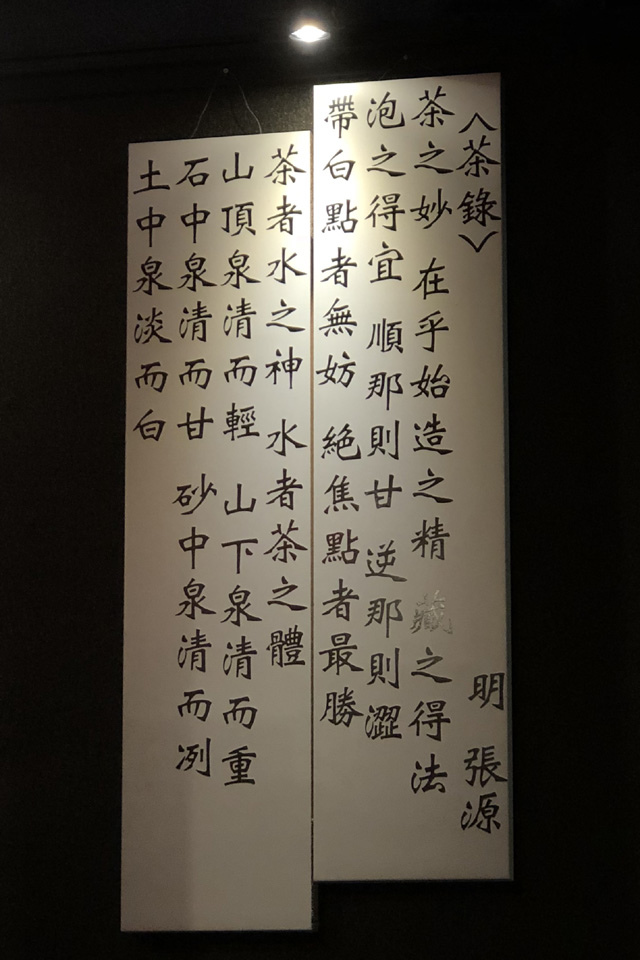 〈茶錄〉 明 張源
茶之妙 在乎始造之精 藏之得法
泡之得宜 順那則甘 逆那則澀
帶白點者無妨 絕焦點者最勝
茶者水之神 水者茶之體
山頂泉清而輕 山下泉清而重
石中泉清而甘 砂中泉清而冽
土中泉淡而白